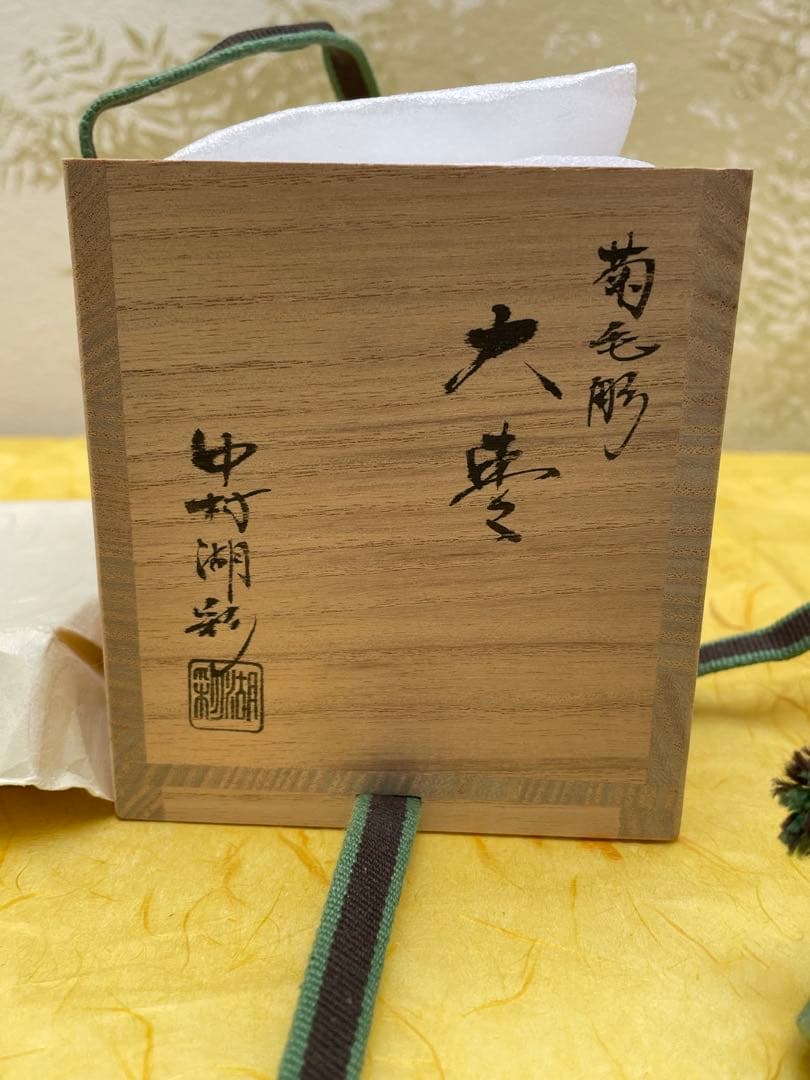 菊毛彫
大棗
中村湖彩
湖彩